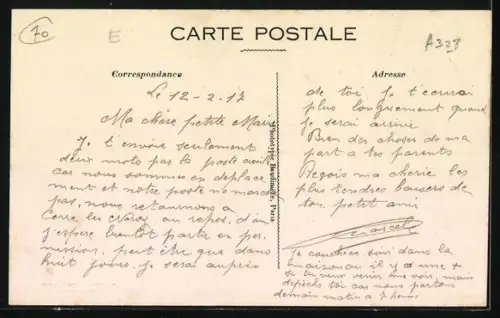 70
E
CARTE POSTALE
A328
Correspondance
Adresse
Le 12-2-17
Ma chère petite Marie
Je t'envoie seulement
deux mots par la poste civile
car nous sommes en deplace
ment et notre poste ne marche
pas, nous retournons a
au repos. d'ou
j'espère bientôt partir en per
mission, peut être que dans
huit jours. Je serai auprès
de toi. Je t'ecrirai
plus longuement quand
je serai arrivé
Bien des choses de ma
part a tes parents
Reçois ma cherie les
plus tendres baisers de
ton petit ami
Marcel
Je coucherai ce soir dans la
maison ou il y a une +
si tu veux venir me voir, mais
depêche toi car nous partons
demain matin a 7 heures
Phototypie Baudinière, Paris